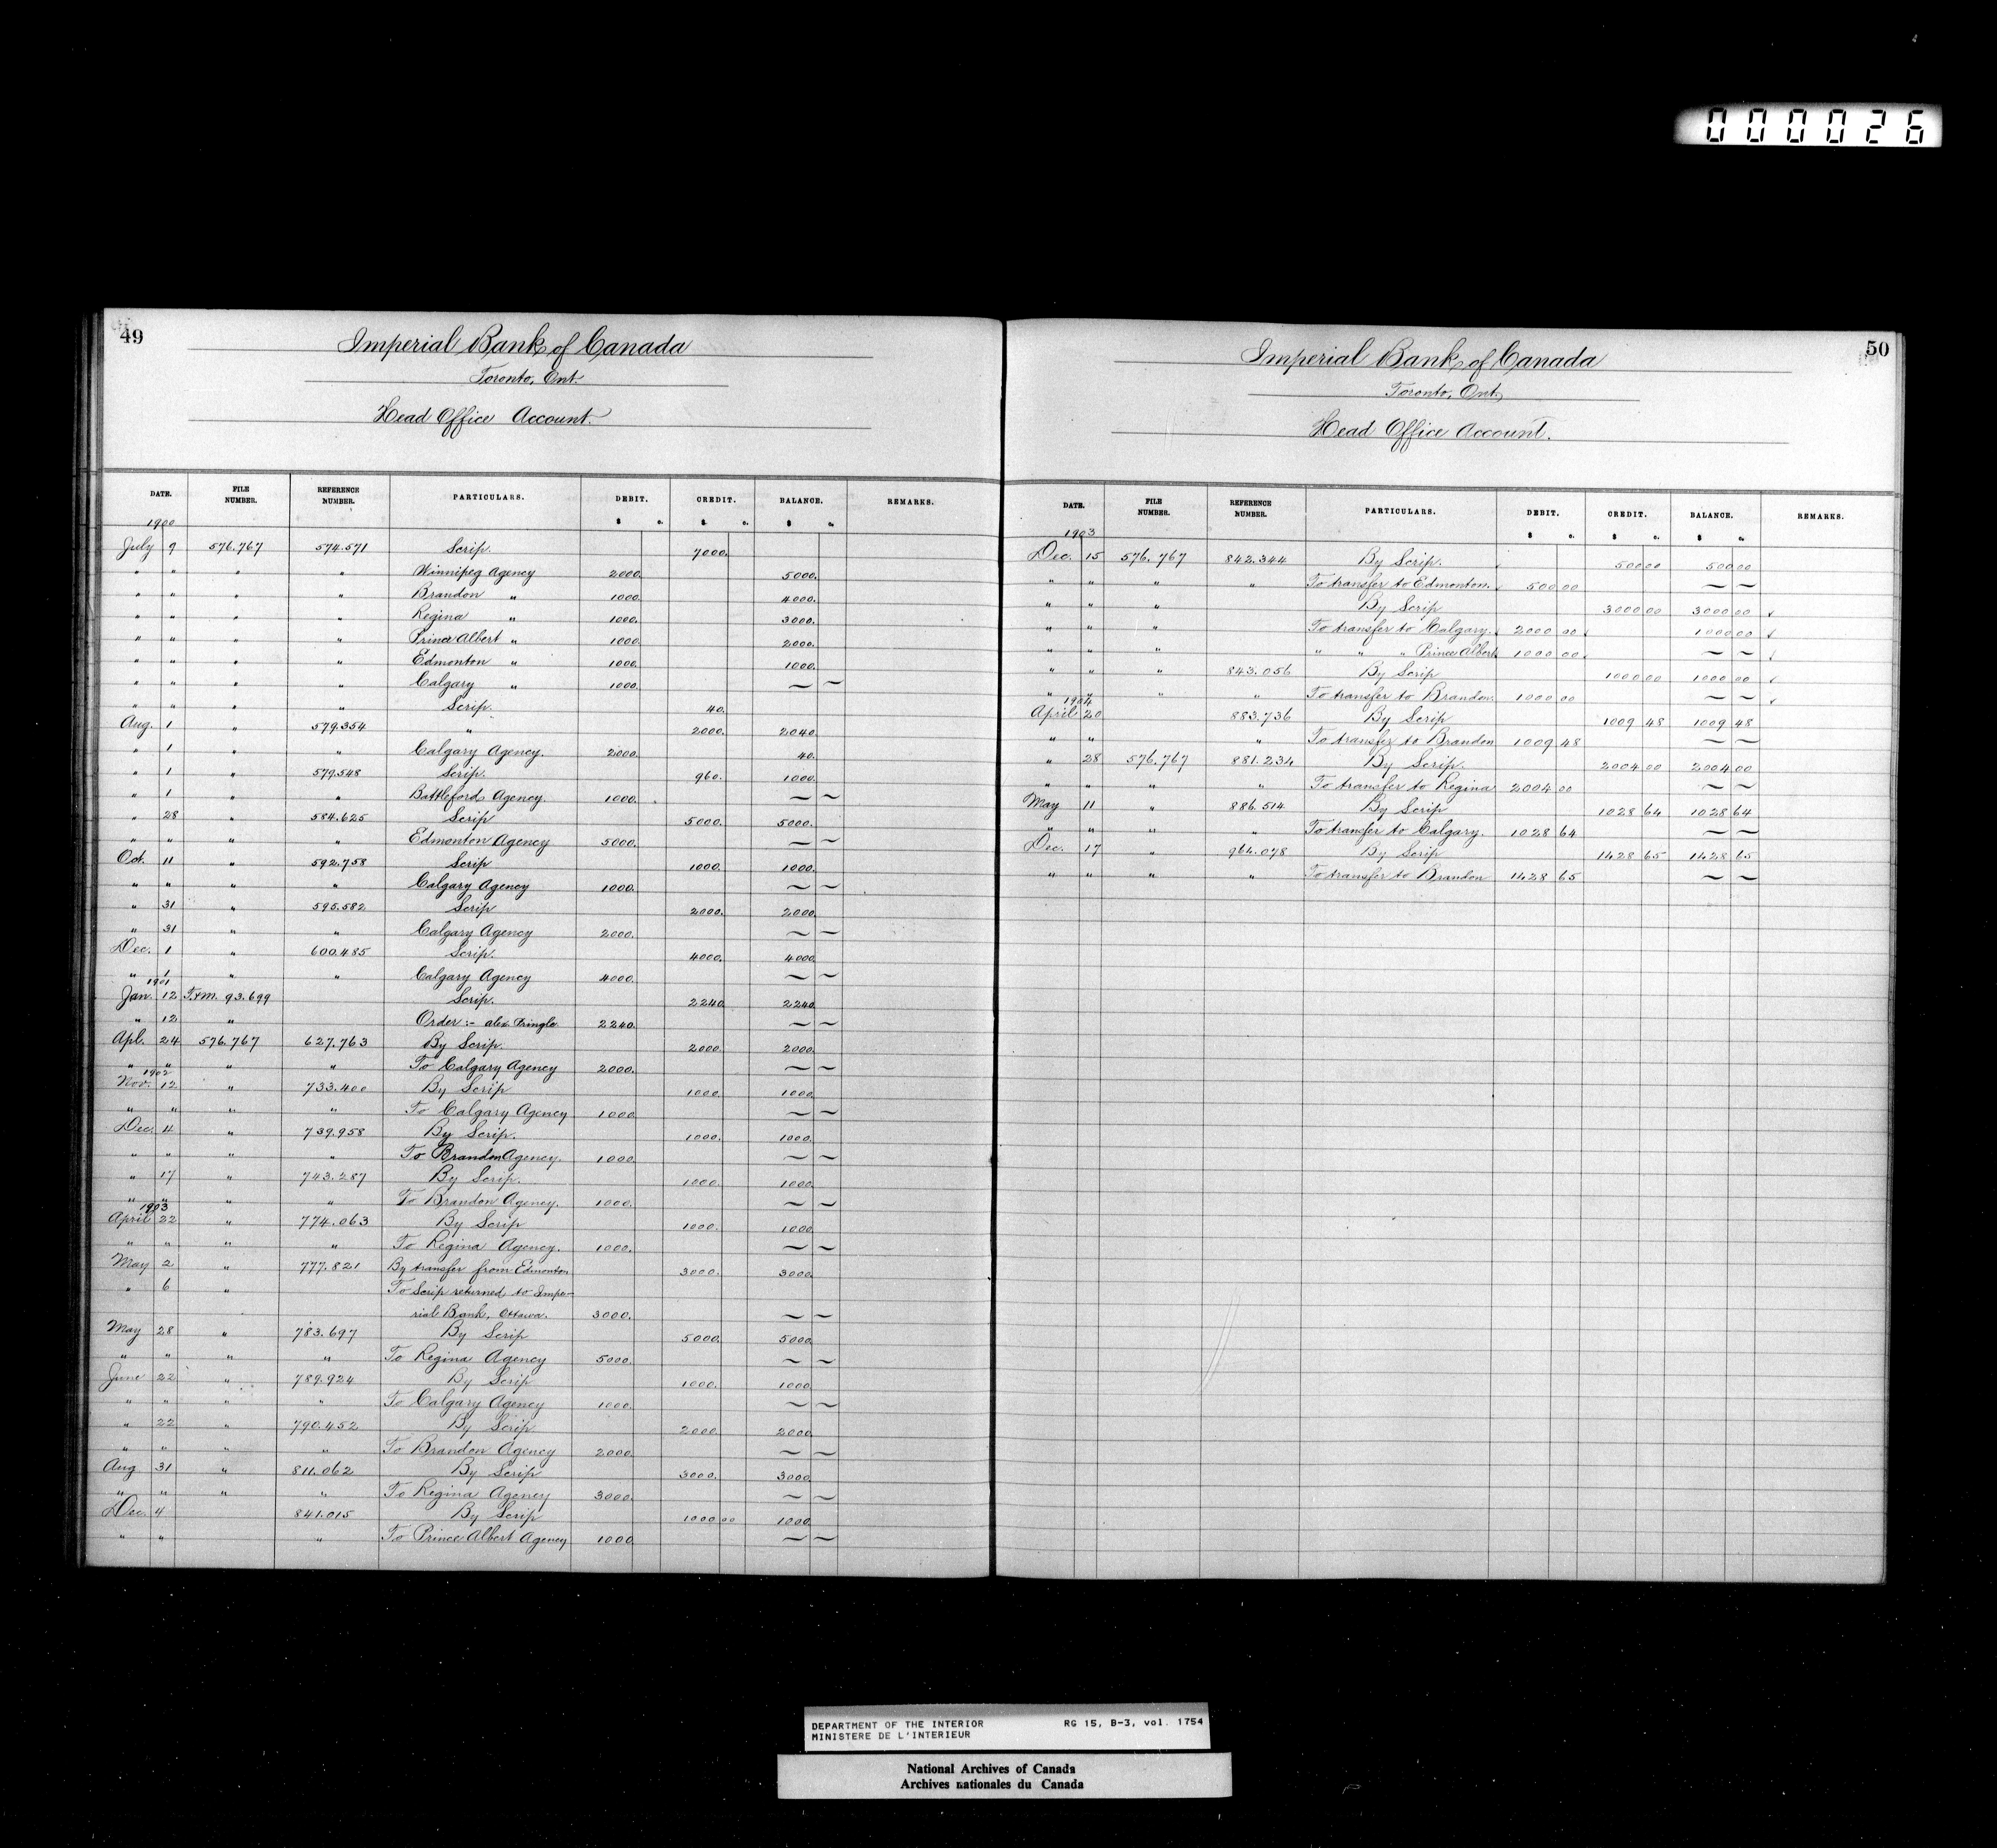 000026
49
Imperial Bank of Canada
Toronto, Ont.
Head Office Account.
DATE. FILE NUMBER. REFERENCE NUMBER. PARTICULARS. DEBIT. CREDIT. BALANCE. REMARKS.
$ c. $ c. $ c.
1900
July 9 576.767 574.571 Scrip. 7000.
" " " " Winnipeg Agency 2000. 5000.
" " " " Brandon " 1000. 4000.
" " " " Regina " 1000. 3000.
" " " " Prince Albert " 1000. 2000.
" " " " Edmonton " 1000. 1000.
" " " " Calgary " 1000. ~ ~
" " " " Scrip. 40.
Aug. 1 " 579.354 " 2000. 2040.
" 1 " " Calgary Agency. 2000. 40.
" 1 " 579.548 Scrip. 960. 1000.
" 1 " " Battleford Agency. 1000. ~ ~
" 28 " 584.625 Scrip 5000. 5000.
" " " " Edmonton Agency 5000. ~ ~
Oct. 11 " 592.758 Scrip 1000. 1000.
" " " " Calgary Agency 1000. ~ ~
" 31 " 595.582 Scrip 2000. 2000.
" 31 " " Calgary Agency 2000. ~ ~
Dec. 1 " 600.485 Scrip. 4000. 4000.
" 1 " " Calgary Agency 4000. ~ ~
1901
Jan. 12 T.&M. 93.699 Scrip. 2240. 2240.
" 12 " Order:- Alex. Pringle. 2240. ~ ~
Apl. 24 576.767 627.763 By Scrip. 2000. 2000.
" " " " To Calgary Agency 2000. ~ ~
1902
Nov. 12 " 733.400 By Scrip 1000. 1000.
" " " " To Calgary Agency 1000. ~ ~
Dec. 4 " 739.958 By Scrip. 1000. 1000.
" " " " To Brandon Agency. 1000. ~ ~
" 17 " 743.287 By Scrip. 1000. 1000.
" " " " To Brandon Agency. 1000. ~ ~
1903
April 22 " 774.063 By Scrip 1000. 1000.
" " " " To Regina Agency. 1000. ~ ~
May 2 " 777.821 By transfer from Edmonton 3000. 3000.
" 6 " To Scrip returned to Impe-
rial Bank, Ottawa. 3000. ~ ~
May 28 " 783.697 By Scrip 5000. 5000.
" " " " To Regina Agency 5000. ~ ~
June 22 " 789.924 By Scrip 1000. 1000.
" " " " To Calgary Agency 1000. ~ ~
" 22 " 790.452 By Scrip 2000. 2000.
" " " " To Brandon Agency 2000. ~ ~
Aug 31 " 811.062 By Scrip 3000. 3000.
" " " " To Regina Agency 3000. ~ ~
Dec. 4 841.015 By Scrip 1000.00 1000.
" " " To Prince Albert Agency 1000. ~ ~
50
Imperial Bank of Canada
Toronto, Ont.
Head Office Account.
DATE. FILE NUMBER. REFERENCE NUMBER. PARTICULARS. DEBIT. CREDIT. BALANCE. REMARKS.
$ c. $ c. $ c.
1903
Dec. 15 576.767 842.344 By Scrip. 500 00 500 00
" " " " To transfer to Edmonton. 500 00 ~ ~
" " " By Scrip 3000 00 3000 00 ✓
" " " To transfer to Calgary. 2000 00 1000 00 ✓
" " " " " " Prince Albert 1000 00 ~ ~ ✓
" " " 843.056 By Scrip 1000 00 1000 00 ✓
" " " " To transfer to Brandon. 1000 00 ~ ~ ✓
1904
April 20 883.736 By Scrip 1009 48 1009 48
" " " To transfer to Brandon 1009 48 ~ ~
" 28 576.767 881.234 By Scrip. 2004 00 2004 00
" " " " To transfer to Regina 2004 00 ~ ~
May 11 " 886.514 By Scrip 1028 64 1028 64
" " " " To transfer to Calgary. 1028 64 ~ ~
Dec. 17 " 964.078 By Scrip 1428 65 1428 65
" " " " To transfer to Brandon 1428 65 ~ ~
DEPARTMENT OF THE INTERIOR RG 15, B-3, vol. 1754
MINISTERE DE L'INTERIEUR
National Archives of Canada
Archives nationales du Canada